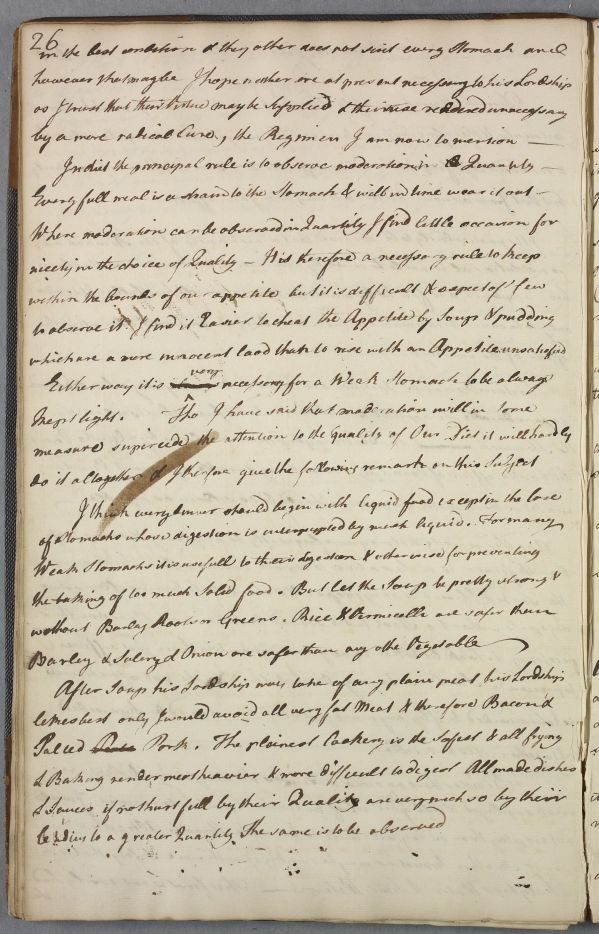 26
in the best condition & they other does not suit every Stomach and
however that may be I hope neither are at present necessary to his Lordship
as I trust that their Virtue may be supplied & their use rendered unnecessary
by a more radical Cure, the Regimen I am now to mention —
In diet the principal rule is to observe moderation in Quantity —
Every full meal is a strain to the Stomach & will in time wear it out —
Where moderation can be observed in Quantity I find little occasion for
nicety in the choice of Quality — It is therefore a necessary rule to keep
within the bounds of our appetite but it is difficult & expect of few
to observe it. I find it Easier to cheat the Appetite by Soups & pudding
which are a more innocent load than to rise with an Appetite unsatisfied
Either way it is very necessary for a Weak Stomach to be always
kept light. Tho I have said that moderation will in some
measure supircede the attention to the Quality of Our Diet it will hardly
do it altogether & I therefore give the following remarks on this Subject
I think every dinner should begin with liquid food except in the Case
of Stomachs whose digestion is interrupted by much liquid. For many
Weak Stomachs it is usefull to their digestion & otherwise for preventing
the taking of too much Solid food. But let the Soup be pretty strong &
without Barley Roots or Greens. Rice & Vermicelle are safer than
Barley & Salery & Onion are safer than any othe Vegetable
After Soup his Lordship may take of any plain meat his Lordship
likes best only I would avoid all very fat Meat & therefore Bacon &
Salted Pork. The plainest Cookery is the Safest & all frying
& Baking render meat heavier & more difficult to digest All made dishes
& Sauces if not hurtfull by their Quality are very much so by their
leading to a greater Quantity The same is to be observed